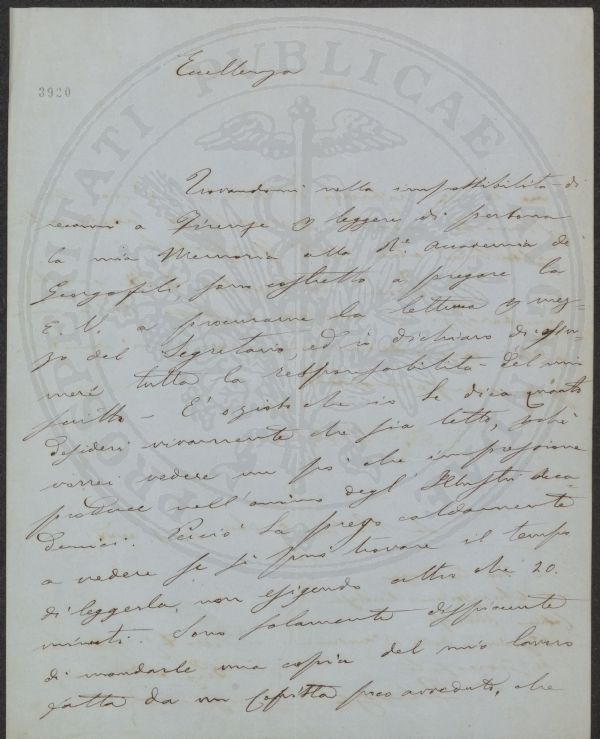 Eccellenza
3920
PROSPERITATI PUBLICAE
Trovandomi nella impossibilità di
recarmi a Firenze p leggere di persona
la mia Memoria alla R.e Accademia de
Georgofili, sono costretto a pregare la
E. V. a procurarne la lettura p mez-
zo del Segretario, ed io dichiaro di assu-
mere tutta la responsabilità del mio
scritto – E' giusto che io Le dica quanto
desideri vivamente che sia letto, poiché
vorrei vedere un po' che impressione
produce nell'animo degl' Illustri Acca-
demici. Perciò La prego caldamente
a vedere se si può trovare il tempo
di leggerla, non esigendo altro che 20.
minuti. Sono solamente dispiacente
di mandarle una copia del mio lavoro
fatta da un Copista poco avveduto, che